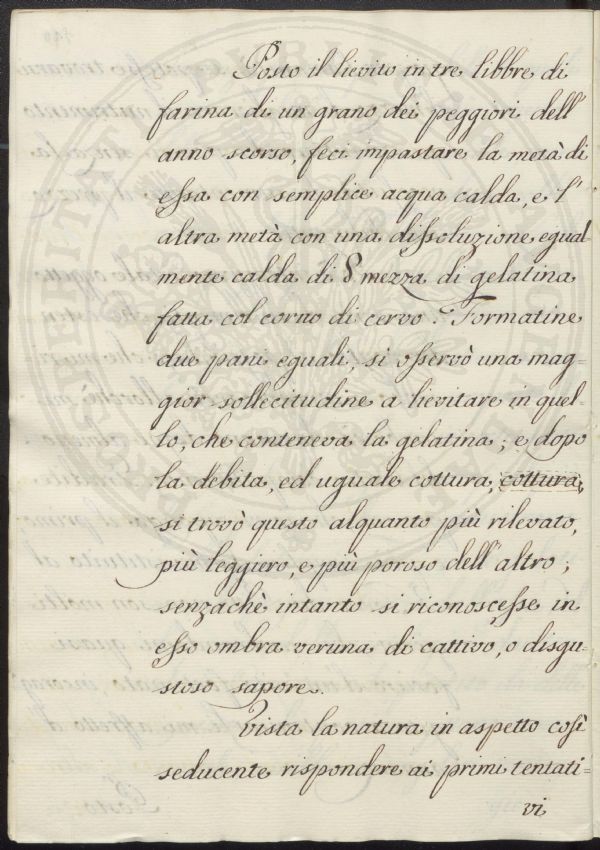 Posto il lievito in tre libbre di
farina di un grano dei peggiori dell'
anno scorso, feci impastare la metà di
essa con semplice acqua calda, e l'
altra metà con una dissoluzione egual-
mente calda di mezza di gelatina
fatta col corno di cervo. Formatine
due pani eguali, si osservò una mag-
gior sollecitudine a lievitare in quel-
lo, che conteneva la gelatina; e dopo
la debita, ed uguale cottura, cottura,
si trovò questo alquanto più rilevato,
più leggiero, e più poroso dell'altro;
senzachè intanto si riconoscesse in
esso ombra veruna di cattivo, o disgu-
stoso sapore.
Vista la natura in aspetto così
seducente rispondere ai primi tentati-
vi